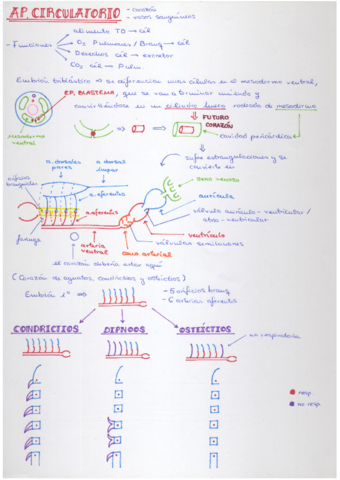 AP. CIRCULATORIO - corazón
- vasos sanguíneos
- Funciones
alimento TD → cél
O₂ Pulmones / Branq → cél
Desechos cél → excretor
CO₂ cél → Pulm
Embrión triblástico → se diferencian unas células en el mesodermo ventral,
EP. BLASTEMA, que se van a terminar uniendo y
convirtiéndose en un cilindro hueco rodeado de mesodermo
FUTURO
CORAZÓN
cavidad pericárdica
Mesodermo
ventral
sufre estrangulaciones y se
convierte en
a. dorsales
pares
a. dorsal
impar
orificios
branquiales
a. eferentes
a. aferentes
faringe
arteria
ventral
cono arterial
seno venoso
aurícula
válvula aurículo-ventricular /
atrio-ventricular
ventrículo
válvulas semilunares
el corazón debería estar aquí
(Corazón de agnatos, condrictios y osteictios)
Embrión 1º ⇒
- 5 orificios branq
- 6 arterias aferentes
CONDRICTIOS
DIPNOOS
OSTEÍCTIOS
no respiratoria
resp.
no resp.